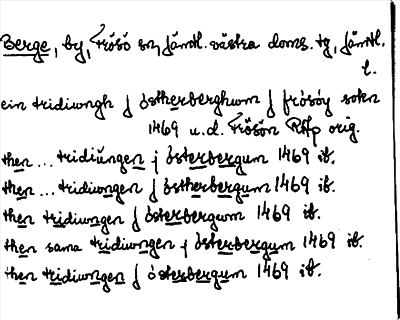 Berge, by, Frösö sn, Jämtl. västra doms. tg, Jämtl.
l.
ein tridiwngh j østherberghwm j frösöy soken
1469 u.d. Frösön RAp orig.
then ... tridiwngen j østerbergum 1469 ib.
then ... tridiwngen j østherbergum 1469 ib.
then tridiwngen j østerbergwm 1469 ib.
then sama tridiwngen j østerbergum 1469 ib.
then tridiwngen j østerbergum 1469 ib.